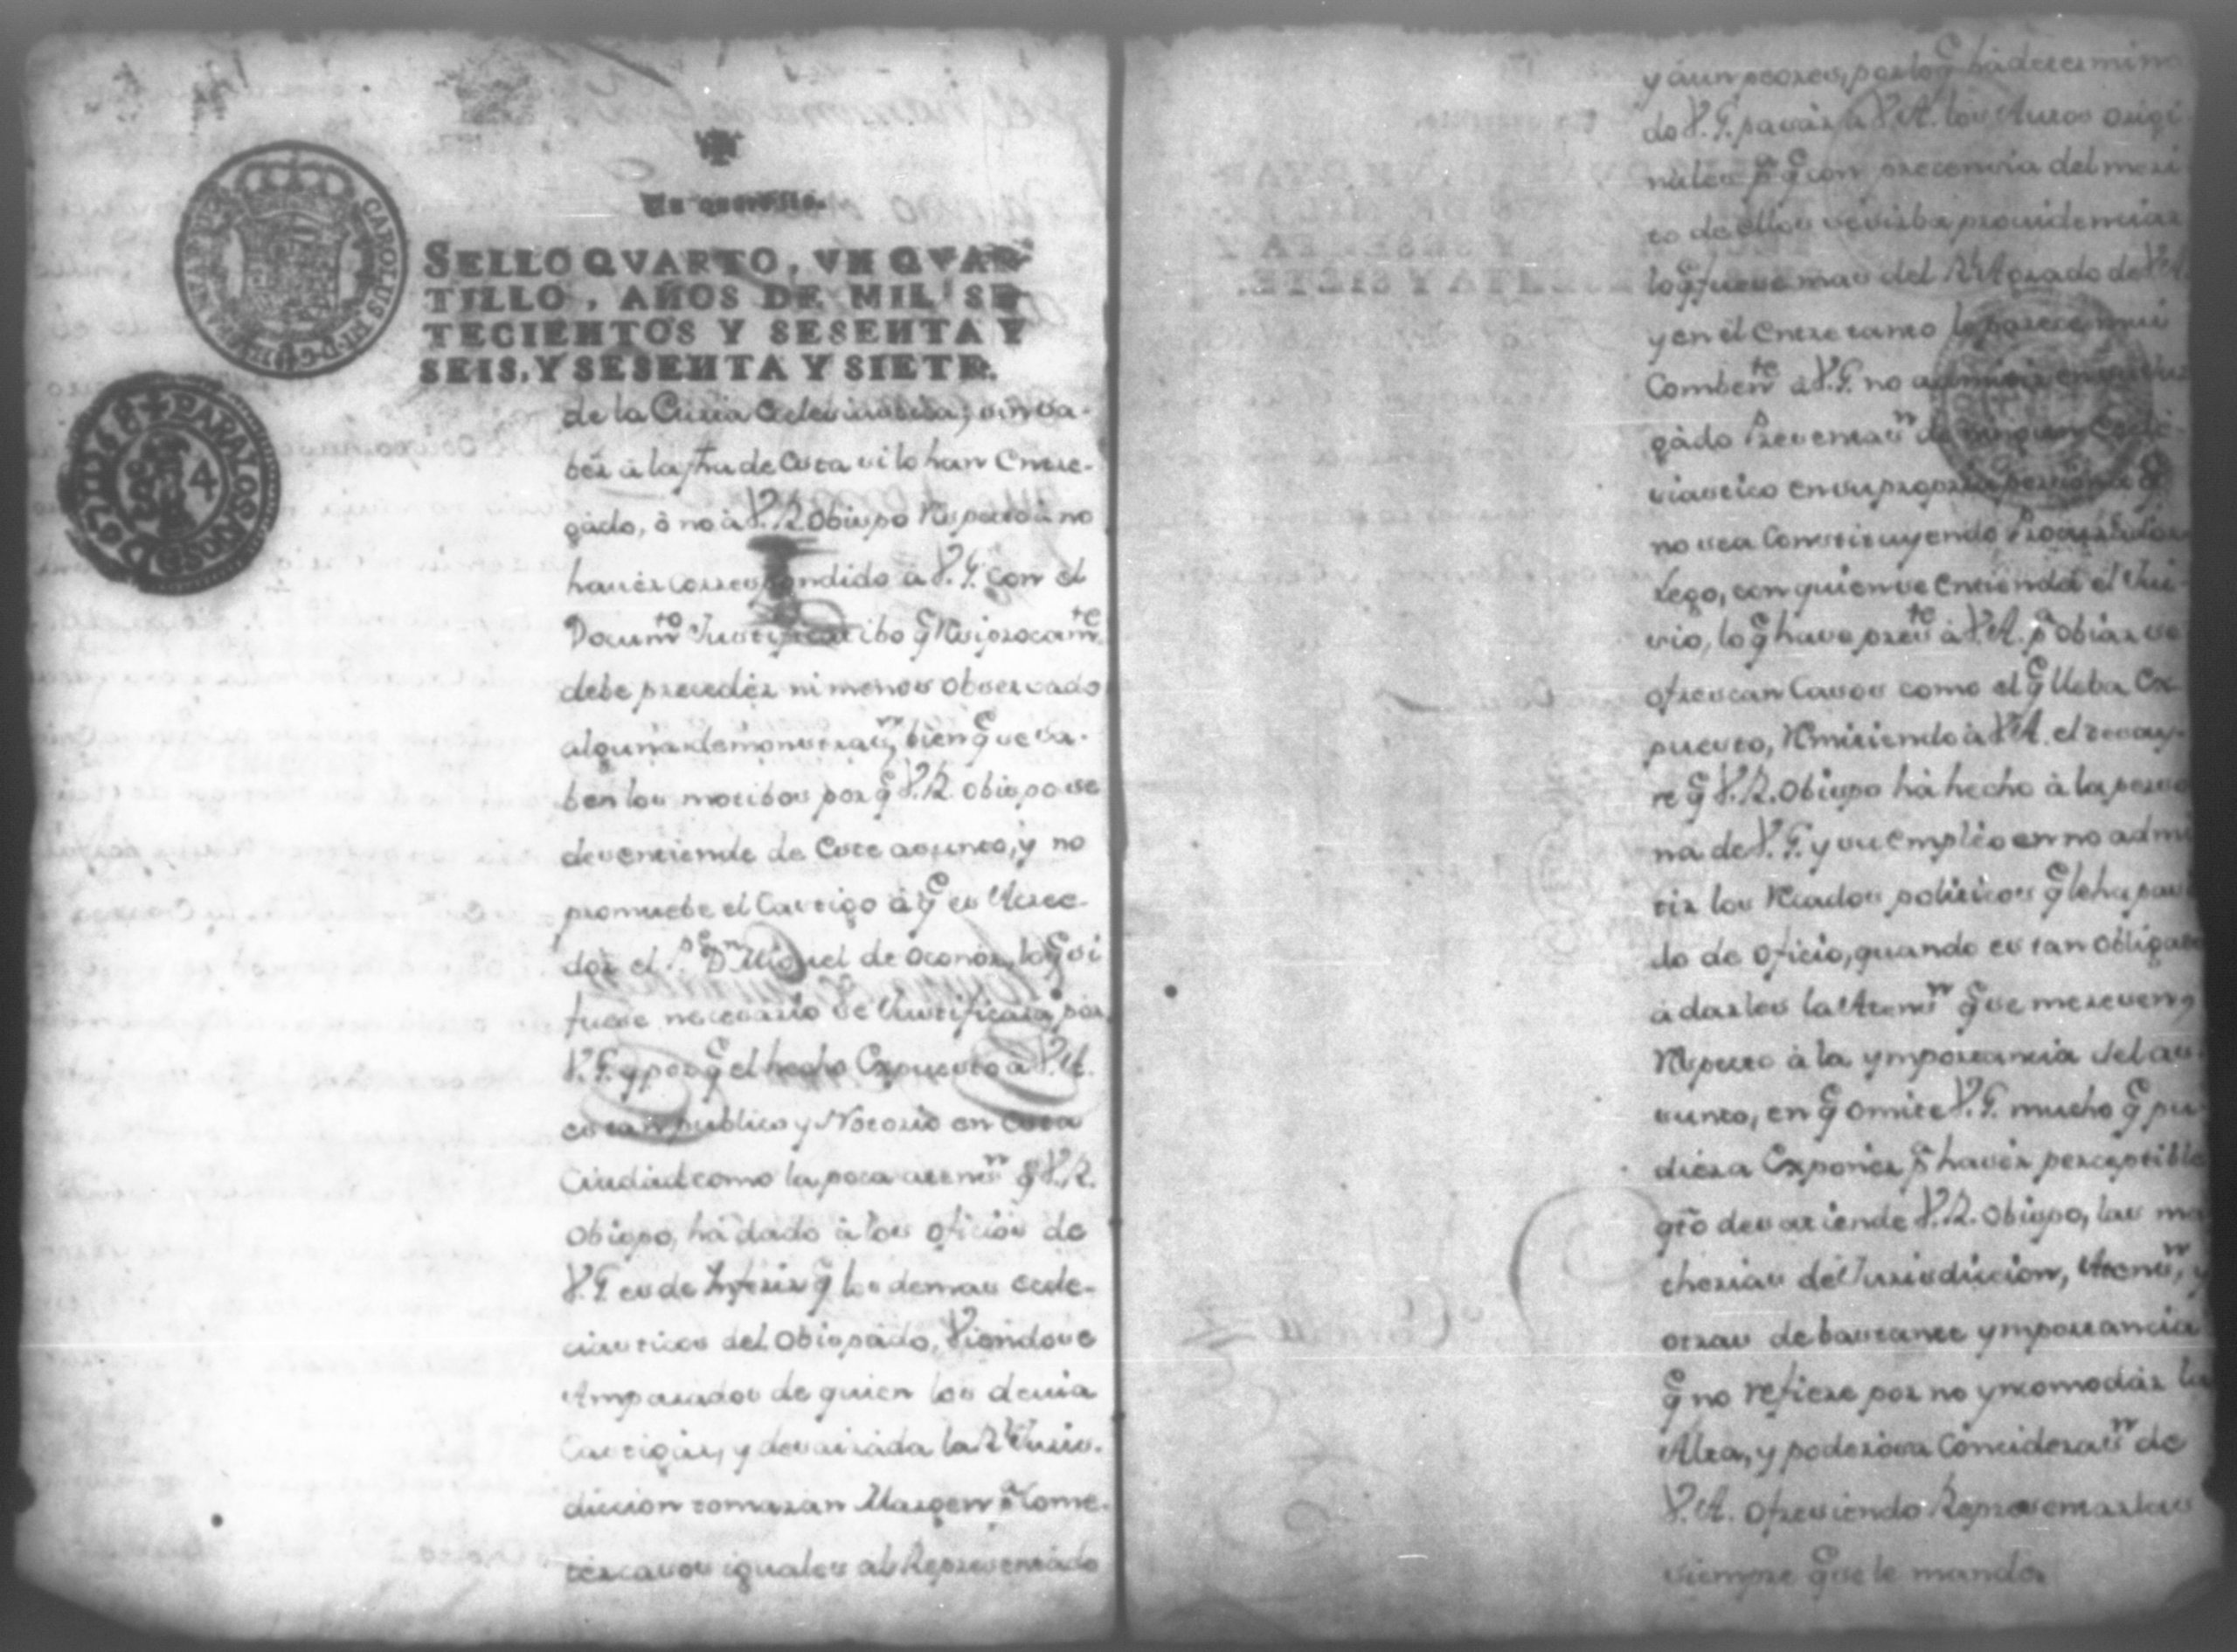 Un quartillo.
SELLO QVARTO, VN QVAR
TILLO, AÑOS DE MIL SE
TECIENTOS Y SESENTA Y
SEIS, Y SESENTA Y SIETE.
CAROLUS III D G
PARA LOS AÑOS D
4
de la Curia Eclesiastica, sin sa-
ber à la fha de esta si lo han Entre-
gàdo, ò no à S.R. Obispo Respecto à no
haver correspondido à S.G. con el
Docum.to Justificatibo q̃ Resiprocam.te
debe preceder ni menos observado
alguna demonstraz.n, bien q̃ se sa-
ben los motibos por q̃ S.R. Obispo se
desentiende de este asunto, y no
promuebe el Castigo à q̃ es Acree-
dor el P.e D.n Miguel de Oconór, lo q̃ si
fuese necesario se Justificara por
S.G. y por q̃ el hecho Expuesto à V.A.
es tan publico y Notorio en esta
Ciudad como la poca atenz.n q̃ S.R.
Obispo, ha dado à los oficios de
S.G. es de Inferir q̃ los demas ecle-
ciasticos del Obispàdo, Viendose
Amparados de quien los devia
Castigar, y desairàda la R.l Juris-
diccion tomaran Margen p.a Come-
ter casos iguales al Representàdo
y àun peores, por lo q̃ hà determina
do S.G. pasar à V.A. los Autos origi
nales p.a q̃ con precencia del meri
to de ellos se sirba providenciar
lo q̃ fuese mas del R.l Agrado de V.A.
y en el Entretanto le parece mui
Comben.te à S.G. no admitir en su Juz
gàdo Presentaz.n de ningun Ecle-
siastico en su propria persona q̃
no sea Constituyendo Procurador
Lego, con quien se entienda el Jui-
sio, lo q̃ hase pres.te à V.A. p.a Obiar se
ofrescan Casos como el q̃ lleba Ex-
puesto, Remitiendo à V.A. el desay-
re q̃ S.R. Obispo hà hecho à la perso
na de S.G. y su empleo en no admi
tir los Recados politicos q̃ le ha pasa
do de Oficio, quando es tan obligado
à darles la Atenz.n q̃ se merecen,
Respecto à la ymportancia del as-
sunto, en q̃ omite S.G. mucho q̃ pu-
diera Exponer p.a haver perceptible
q̃to desatiende S.R. Obispo, las ma
therias de Jurisdiccion, Atenz.n, y
otras de bastante ymportancia
q̃ no refiere por no yncomodàr la
Alta, y poderosa Concideraz.n de
V.A. Ofresiendo Representarlas
siempre q̃ se le mande.